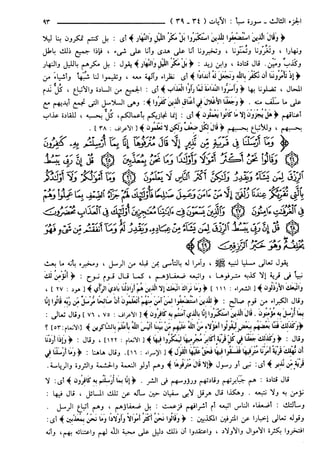 الجزء الثالث - سورة سبأ : الآيات ( ٣٤ - ٣٩ ) ٩٣
﴿وقال الذين استضعفوا للذين استكبروا بل مكر الليل والنهار﴾ أي : بل كنتم تمكرون بنا ليلا
ونهارا ، وتغرونا وتمنونا ، وتخبرونا أنا على هدى وأنا على شيء ، فإذا جميع ذلك باطل
وكذب ومين . قال قتادة ، وابن زيد : ﴿بل مكر الليل والنهار﴾ يقول : بل مكركم بالليل والنهار
﴿إذ تأمروننا أن نكفر بالله ونجعل له أندادا﴾ أي نظراء وآلهة معه ، وتقيموا لنا شبها وأشياء من
المحال ، تضلونا بها ﴿وأسروا الندامة لما رأوا العذاب﴾ أي : الجميع من السادة والأتباع ، كل ندم
على ما سلف منه . ﴿وجعلنا الأغلال في أعناق الذين كفروا﴾ وهي السلاسل التي تجمع أيديهم مع
أعناقهم ﴿هل يجزون إلا ما كانوا يعملون﴾ أي : إنما نجازيكم بأعمالكم، كل بحسبه ، للقادة عذاب
بحسبهم ، وللأتباع بحسبهم ﴿قال لكل ضعف ولكن لا تعلمون﴾ [ الأعراف : ٣٨ ] .
﴿وما أرسلنا في قرية من نذير إلا قال مترفوها إنا بما أرسلتم به كافرون
وقالوا نحن أكثر أموالا وأولادا وما نحن بمعذبين قل إن ربي يبسط الرزق لمن يشاء ويقدر
ولكن أكثر الناس لا يعلمون وما أموالكم ولا أولادكم بالتي تقربكم عندنا زلفى إلا من آمن وعمل صالحا فأولئك لهم جزاء الضعف بما عملوا وهم
في الغرفات آمنون والذين يسعون في آياتنا معاجزين أولئك في العذاب محضرون
قل إن ربي يبسط الرزق لمن يشاء من عباده ويقدر له وما أنفقتم من شيء
فهو يخلفه وهو خير الرازقين﴾
يقول تعالى مسليا لنبيه ، وآمرا له بالتأسي بمن قبله من الرسل ، ومخبره بأنه ما بعث
نبيا في قرية إلا كذبه مترفوها ، واتبعه ضعفاؤهم ، كما قال قوم نوح : ﴿أنؤمن لك
واتبعك الأرذلون﴾ [ الشعراء : ١١١ ] ﴿وما نراك اتبعك إلا الذين هم أراذلنا بادي الرأي﴾ [ هود : ٢٧ ] ،
وقال الكبراء من قوم صالح : ﴿للذين استضعفوا لمن آمن منهم أتعلمون أن صالحا مرسل من ربه قالوا إنا
بما أرسل به مؤمنون . قال الذين استكبروا إنا بالذي آمنتم به كافرون﴾ [ الأعراف : ٧٥ ، ٧٦ ] وقال تعالى :
﴿وكذلك فتنا بعضهم ببعض ليقولوا أهؤلاء من الله عليهم من بيننا أليس الله بأعلم بالشاكرين﴾ [الأنعام :٥٣] ؟
وقال : ﴿وكذلك جعلنا في كل قرية أكابر مجرميها ليمكروا فيها﴾ [ الأنعام : ١٢٣] ، وقال : ﴿وإذا أردنا
أن نهلك قرية أمرنا مترفيها ففسقوا فيها فحق عليها القول فدمرناها تدميرا﴾ [ الإسراء : ١٦]. وقال هاهنا : ﴿وما أرسلنا في
قرية من نذير﴾ أي: نبي أو رسول ﴿إلا قال مترفوها﴾ وهم أولو النعمة والحشمة والثروة والرياسة.
قال قتادة : هم جبابرتهم وقادتهم ورؤوسهم في الشر . ﴿إنا بما أرسلتم به كافرون﴾ أي : لا
نؤمن به ولا نتبعه . وهكذا قال هرقل لأبي سفيان حين سأله عن تلك المسائل ، قال فيها :
وسألتك : أضعفاء الناس اتبعه أم أشرافهم فزعمت : بل ضعفاؤهم ، وهم أتباع الرسل .
وقوله تعالى إخبارا عن المترفين المكذبين : ﴿وقالوا نحن أكثر أموالا وأولادا وما نحن بمعذبين﴾ أي :
افتخروا بكثرة الأموال والأولاد ، واعتقدوا أن ذلك دليل على محبة الله لهم واعتنائه بهم، وأنه